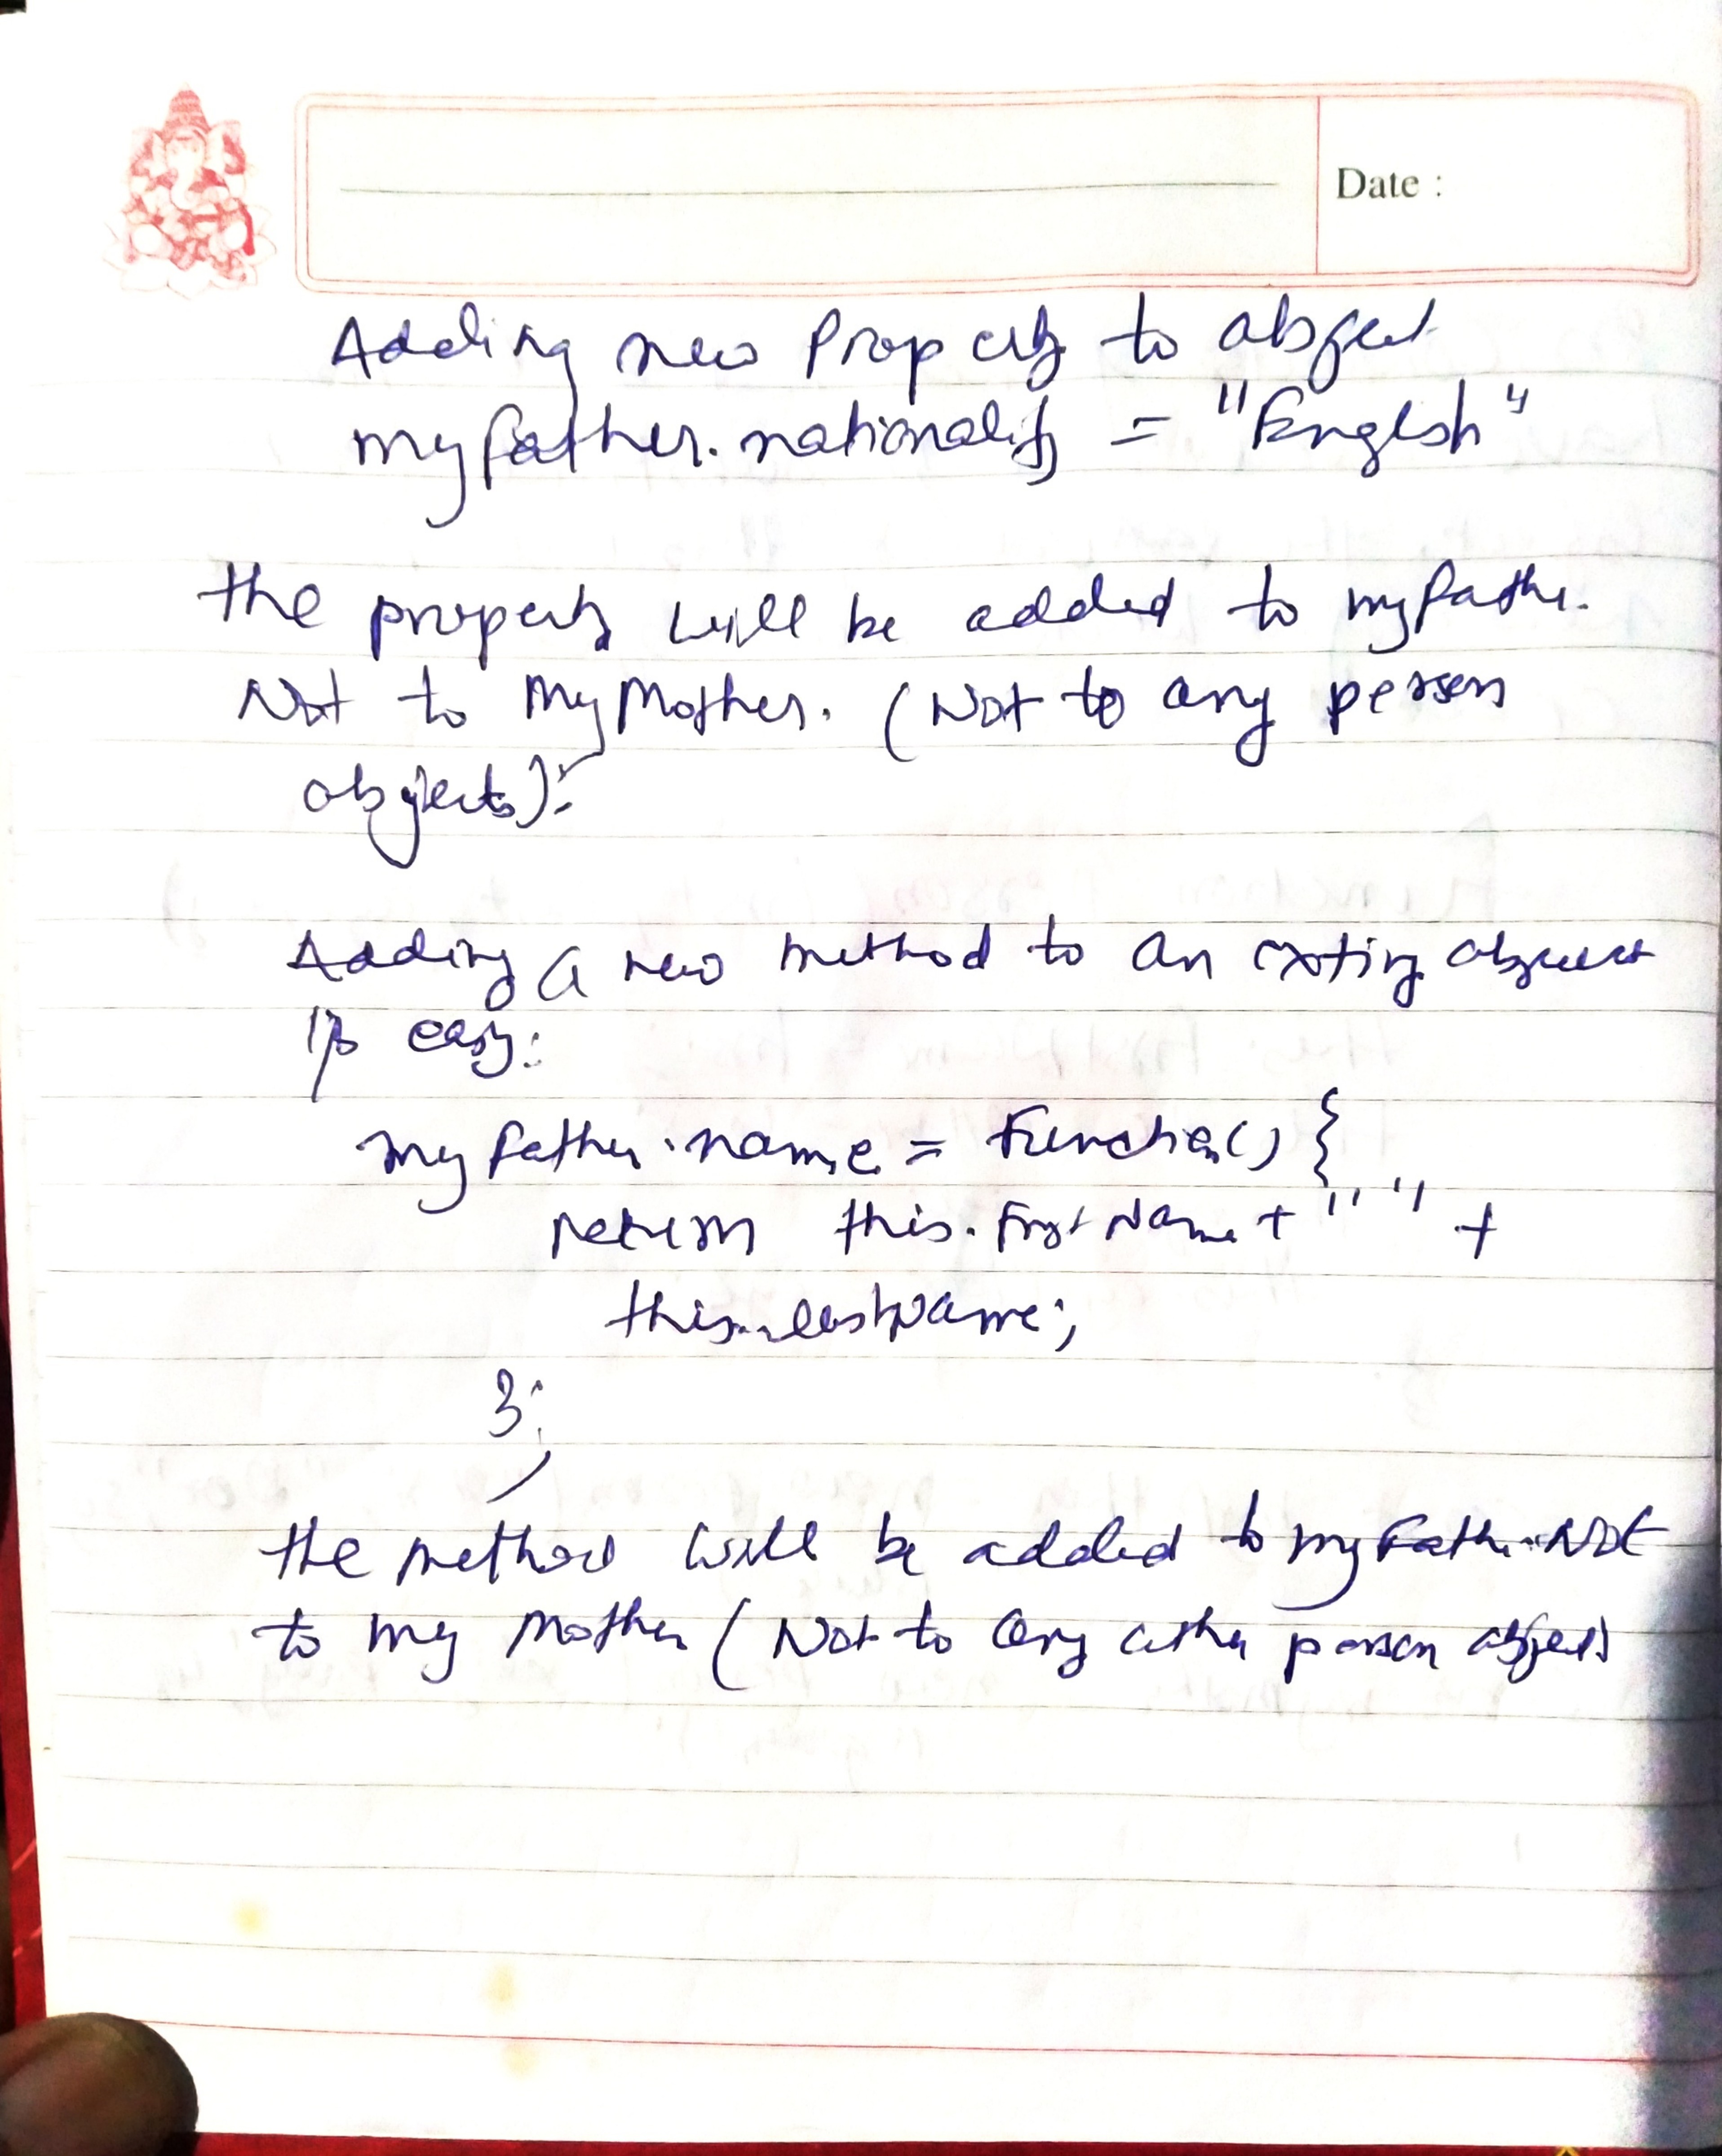 Date :
Adding new Property to object
myfather.nationality = "English"
the property will be added to myfather.
Not to myMother. (Not to any person
objects):
Adding a new method to an existing object
is easy:
myfather.name = Function() {
return this.firstName + " " +
this.lastName;
};
the method will be added to myFather. Not
to my Mother (Not to any other person objects)